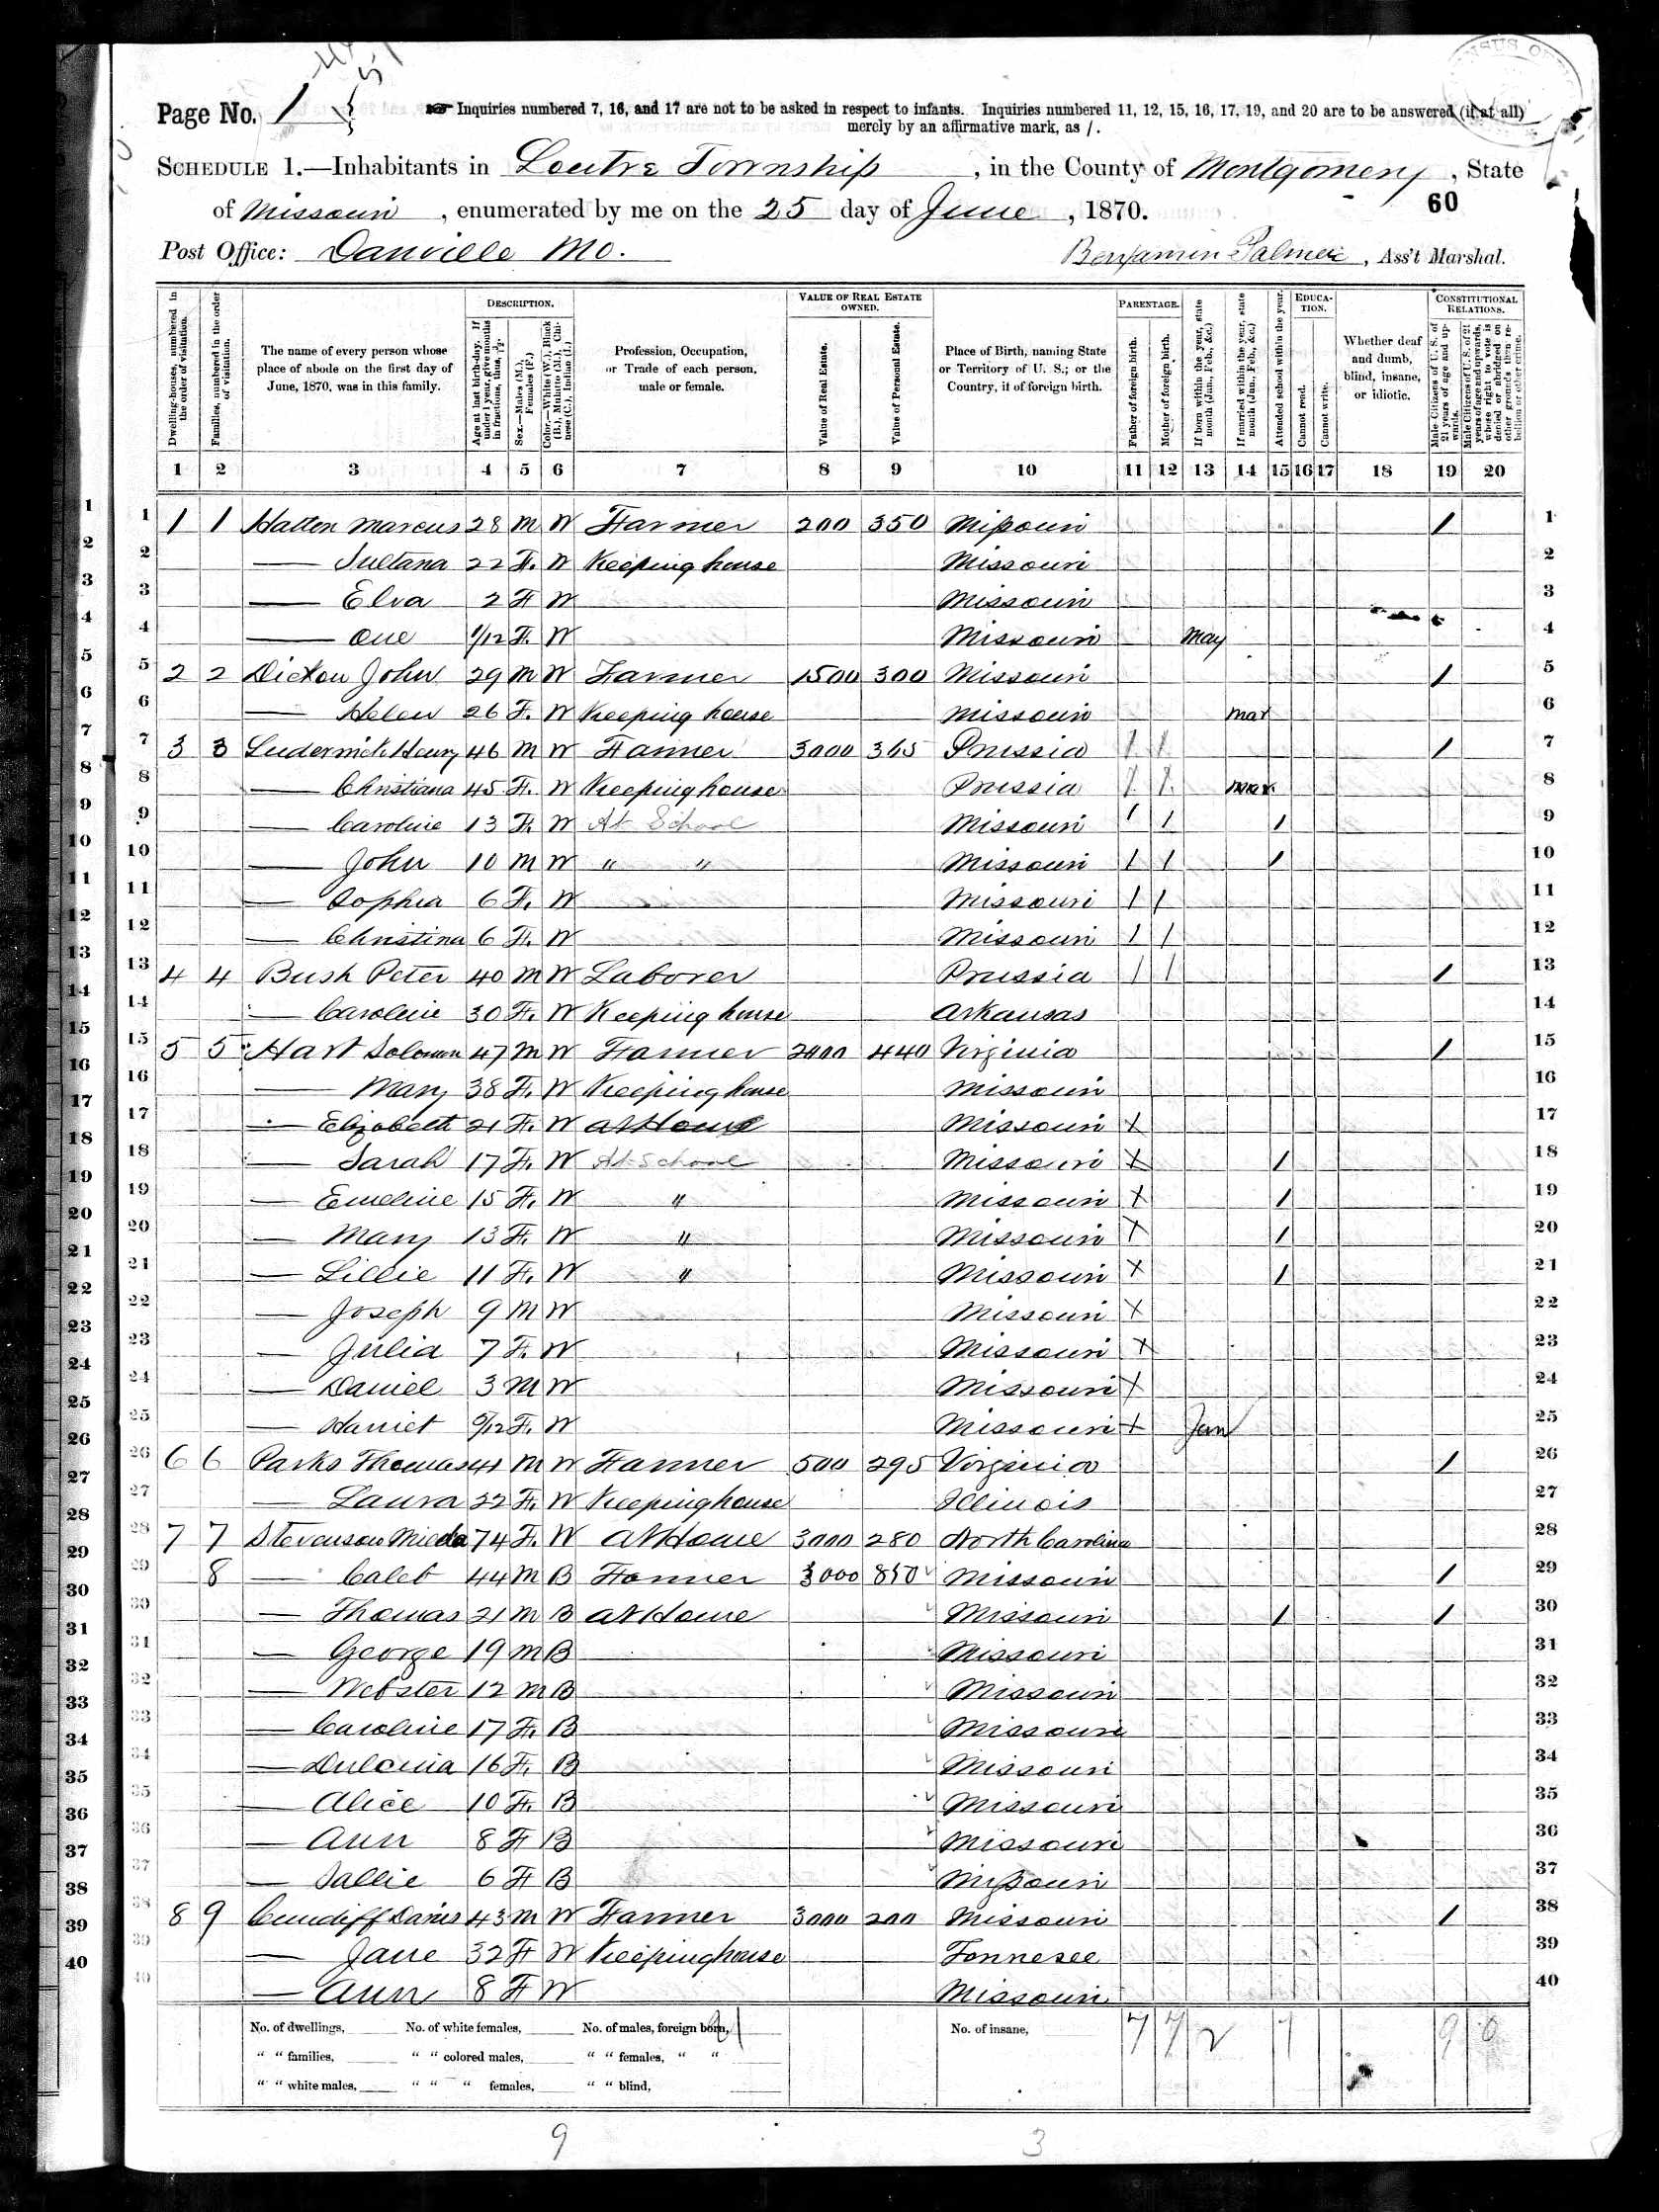 Page No. 1
Inquiries numbered 7, 16, and 17 are not to be asked in respect to infants. Inquiries numbered 11, 12, 15, 16, 17, 19, and 20 are to be answered (if at all)
merely by an affirmative mark, as /.
SCHEDULE 1.—Inhabitants in Loutre Township, in the County of Montgomery, State
of Missouri, enumerated by me on the 25 day of June, 1870. 60
Post Office: Danville Mo. Benjamin Palmer, Ass't Marshal.
Dwelling-houses, numbered in the order of visitation.
Families, numbered in the order of visitation.
The name of every person whose place of abode on the first day of June, 1870, was in this family.
DESCRIPTION.
Age at last birth-day. If under 1 year, give months in fractions, thus, 3/12.
Sex.—Males (M.), Females (F.)
Color.—White (W.), Black (B.), Mulatto (M.), Chinese (C.), Indian (I.)
Profession, Occupation, or Trade of each person, male or female.
VALUE OF REAL ESTATE OWNED.
Value of Real Estate.
Value of Personal Estate.
Place of Birth, naming State or Territory of U. S.; or the Country, if of foreign birth.
PARENTAGE.
Father of foreign birth.
Mother of foreign birth.
If born within the year, state month (Jan., Feb., &c.)
If married within the year, state month (Jan., Feb., &c.)
Attended school within the year.
EDUCATION.
Cannot read.
Cannot write.
Whether deaf and dumb, blind, insane, or idiotic.
CONSTITUTIONAL RELATIONS.
Male Citizens of U. S. of 21 years of age and upwards.
Male Citizens of U. S. of 21 years of age and upwards, whose right to vote is denied or abridged on other grounds than rebellion or other crime.
1 2 3 4 5 6 7 8 9 10 11 12 13 14 15 16 17 18 19 20
1 1 1 Hatton Marcus 28 M W Farmer 200 350 Missouri / 1
2 — Sultana 22 F. W Keeping house Missouri 2
3 — Elva 2 F W Missouri 3
4 — One 1/12 F. W Missouri May 4
5 2 2 Dixon John 29 M W Farmer 1500 300 Missouri / 5
6 — Helen 26 F. W Keeping house Missouri Mar 6
7 3 3 Henry 46 M W Farmer 3000 365 Prussia / / / 7
8 — Christiana 45 F. W Keeping house Prussia / / 8
9 — Caroline 13 F. W At School Missouri / / / 9
10 — John 10 M W " " Missouri / / / 10
11 — Sophia 6 F. W Missouri / / 11
12 — Christina 6 F. W Missouri / / 12
13 4 4 Bush Peter 40 M W Laborer Prussia / / / 13
14 — Caroline 30 F. W Keeping house Arkansas 14
15 5 5 Hart Solomon 47 M W Farmer 2000 440 Virginia / 15
16 — Mary 38 F. W Keeping house Missouri 16
17 — Elizabeth 21 F. W At Home Missouri X 17
18 — Sarah 17 F. W At School Missouri X / 18
19 — Emeline 15 F. W " Missouri X / 19
20 — Mary 13 F. W " Missouri X / 20
21 — Lillie 11 F. W " Missouri X / 21
22 — Joseph 9 M W Missouri X 22
23 — Julia 7 F. W Missouri X 23
24 — Daniel 3 M W Missouri X 24
25 — Harriet /12 F. W Missouri X Jan 25
26 6 6 Parks Thomas 41 M W Farmer 500 295 Virginia / 26
27 — Laura 22 F. W Keeping house Illinois 27
28 7 7 Stevenson 74 F. W At Home 3000 280 North Carolina 28
29 8 — Caleb 44 M B Farmer 3000 850 Missouri / 29
30 — Thomas 21 M B At Home Missouri / / 30
31 — George 19 M B Missouri 31
32 — Webster 12 M B Missouri 32
33 — Caroline 17 F. B Missouri 33
34 — Dulcnia 16 F. B Missouri 34
35 — Alice 10 F. B Missouri 35
36 — Ann 8 F B Missouri 36
37 — Sallie 6 F B Missouri 37
38 8 9 Cundiff 43 M W Farmer 3000 200 Missouri / 38
39 — Jane 32 F W Keeping house Tennesee 39
40 — Ann 8 F W Missouri 40
No. of dwellings, No. of white females, No. of males, foreign born, No. of insane, 7 7 2 7 9 0
" " families, " " colored males, " " females, " "
" " white males, " " " females, " " blind,
9 3